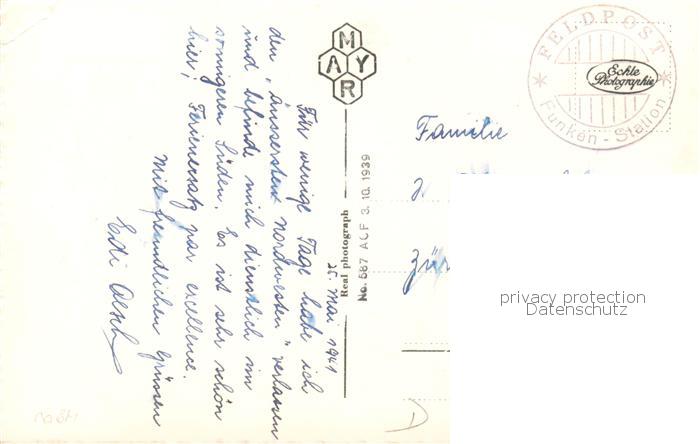 25. Mai 1941
Für wenige Tage habe ich
den "äussersten Nordwesten" verlassen
und befinde mich dienstlich im
sonnigeren Süden. Es ist sehr schön
hier; Ferienersatz par excellence.
Mit freundlichen Grüssen
Edi
MAYR
Real photograph
No. 587 ACF 3. 10. 1939
FELDPOST
Funken-Station
Echte
Photographie
Familie
J.
Zür
privacy protection
Datenschutz
D